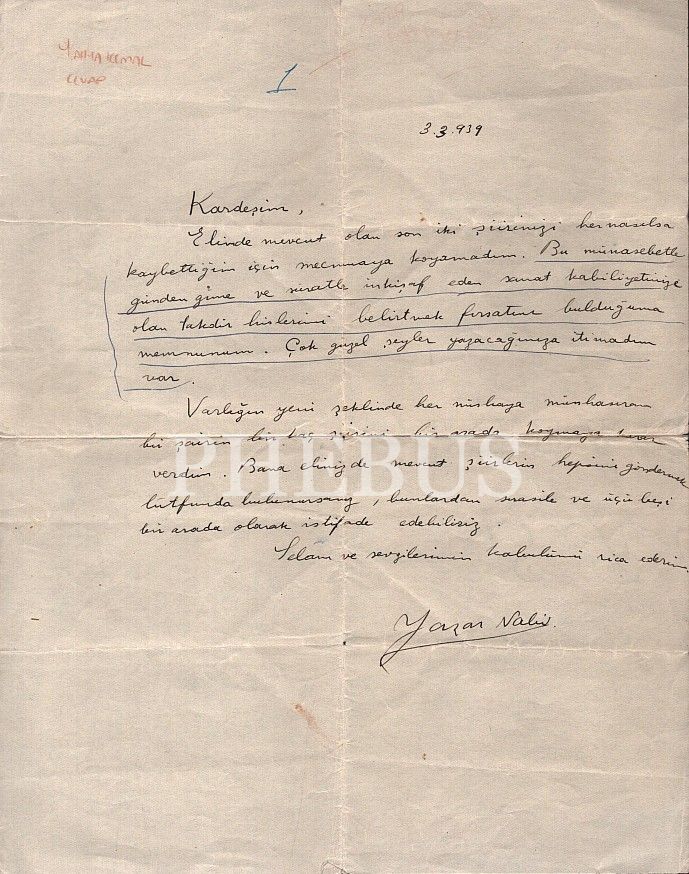 YAHYA KEMAL
CEVAP
1
3.3.939
Kardeşim,
Elinde mevcut olan son iki şiirinizi her nasılsa
kaybettiğim için mecmuaya koyamadım. Bu münasebetle
günden güne ve süratle inkişaf eden sanat kabiliyetinize
olan takdir hislerimi belirtmek fırsatını bulduğuma
memnunum. Çok güzel şeyler yazacağınıza itimadım
var.
Varlığın yeni şeklinde her nüshaya münhasıran
bir şairin bir kaç şiirini bir arada koymaya karar
verdim. Bana elinizde mevcut şiirlerin hepsini göndermek
lûtfunda bulunursanız, bunlardan sırasile ve üçü beşi
bir arada olarak istifade edebiliriz.
Selâm ve sevgilerimin kabulünü rica ederim.
Yaşar Nabi
PHEBUS